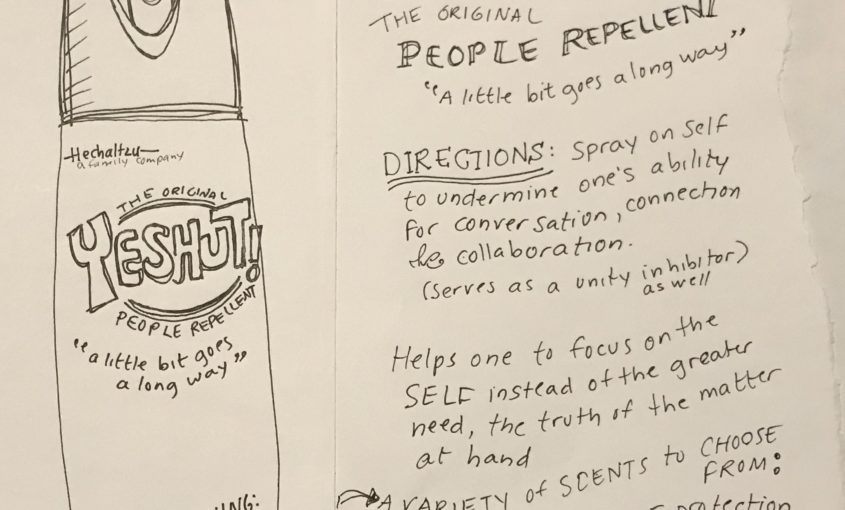 Hechaltzu
a family company
THE ORIGINAL
YESHUT!
PEOPLE REPELLENT
"a little bit goes
a long way"
THE ORIGINAL
PEOPLE REPELLENT
"A little bit goes a long way"
DIRECTIONS: Spray on self
to undermine one's ability
for conversation, connection
& collaboration.
(serves as a unity inhibitor)
as well
Helps one to focus on the
SELF instead of the greater
need, the truth of the matter
at hand
A VARIETY of SCENTS to CHOOSE
FROM:
protection